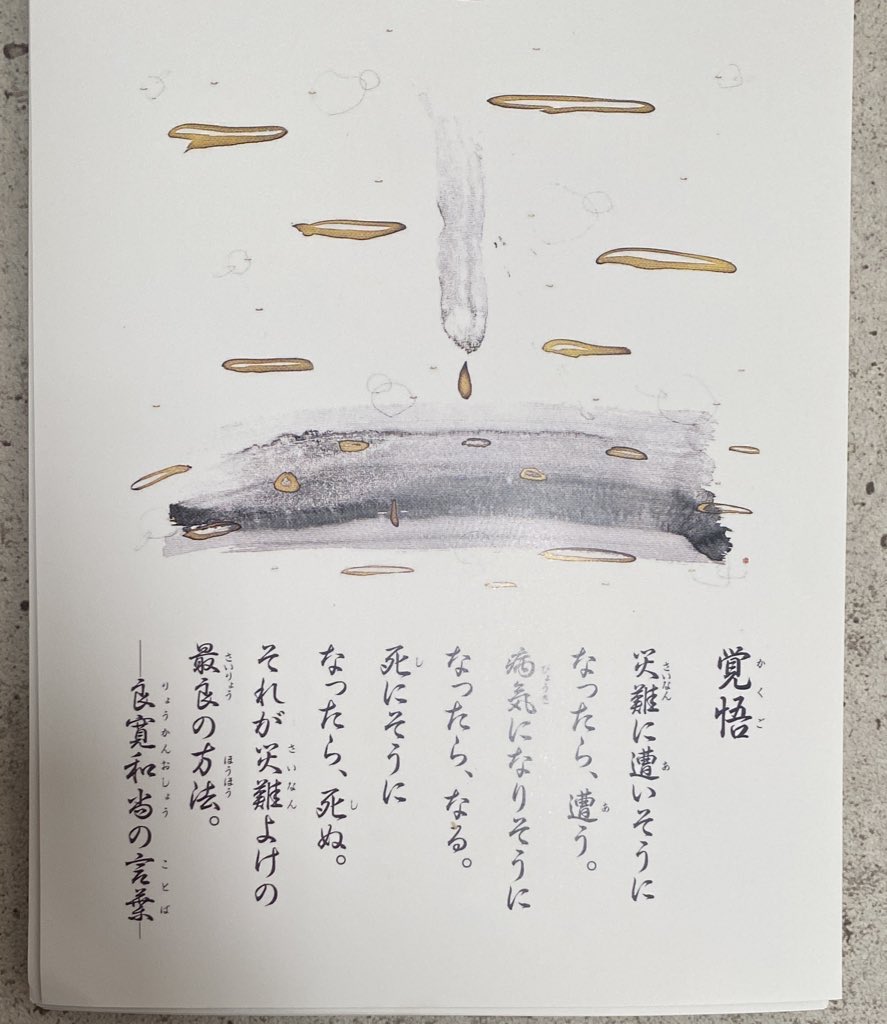 覚悟
災難に遭いそうに
なったら、遭う。
病気になりそうに
なったら、なる。
死にそうに
なったら、死ぬ。
それが災難よけの
最良の方法。
―良寛和尚の言葉―